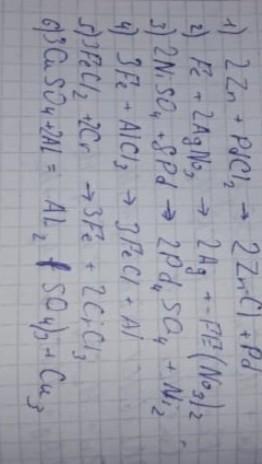 1) 2Zn + PdCl₂ → 2ZnCl + Pd
2) Fe + 2AgNO₃ → 2Ag + FE(NO₃)₂
3) 2NiSO₄ + 8Pd → 2Pd₄SO₄ + Ni₂
4) 3Fe + AlCl₃ → 3FeCl + Al
5) 3FeCl₂ + 2Cr → 3Fe + 2CrCl₃
6) 3CuSO₄ + 2Al = Al₂(SO₄)₃ + Cu₃